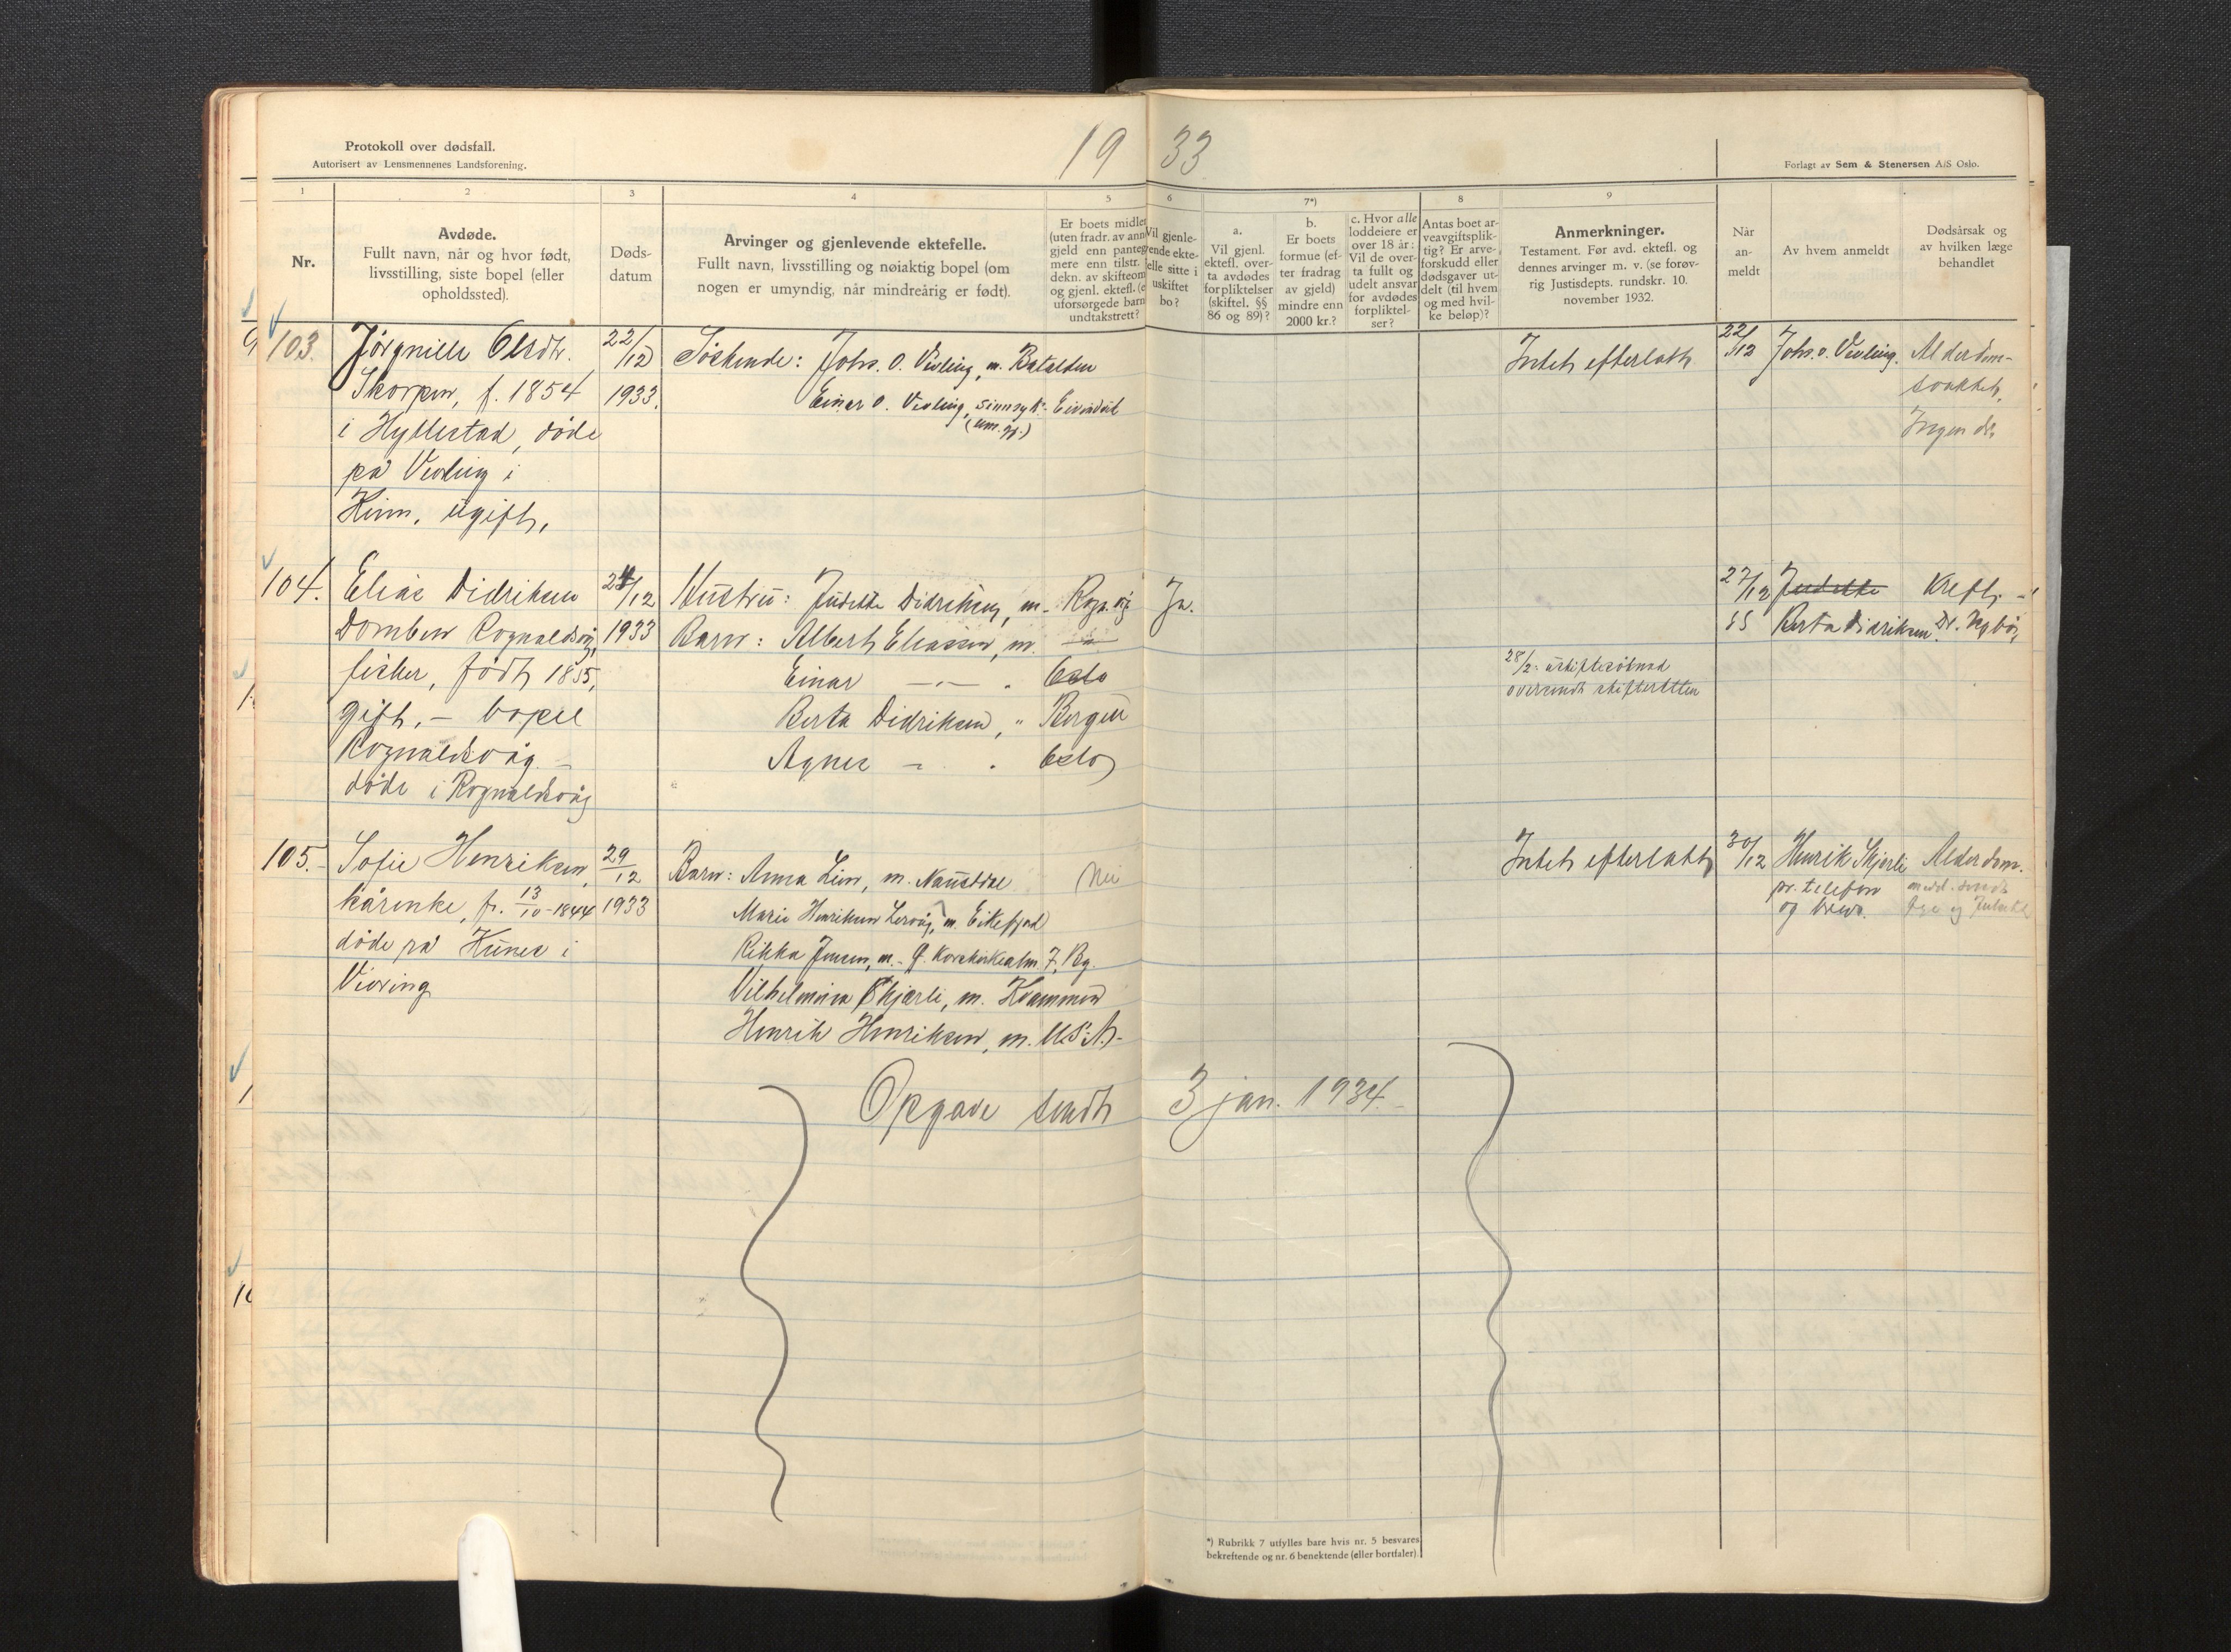 Protokoll over dødsfall.
Autorisert av Lensmennenes Landsforening.
19 33
Forlagt av Sem & Stenersen A/S Oslo.
1
2
3
4
5
6
7*)
8
9
Nr.
Avdøde.
Fullt navn, når og hvor født,
livsstilling, siste bopel (eller
opholdssted).
Døds-
datum
Arvinger og gjenlevende ektefelle.
Fullt navn, livsstilling og nøiaktig bopel (om
nogen er umyndig, når mindreårig er født).
Er boets midler
(uten fradr. av ann
gjeld enn panteg
mere enn tilstr.
dekn. av skifteom
og gjenl. ektefl. (e
uforsørgede barn
undtakstrett?
Vil gjenle-
ende ekte-
elle sitte i
uskiftet
bo?
a.
Vil gjenl.
ektefl. over-
ta avdødes
forpliktelser
(skiftel. §§
86 og 89)?
b.
Er boets
formue (ef-
ter fradrag
av gjeld)
mindre enn
2000 kr.?
c. Hvor alle
loddeiere er
over 18 år:
Vil de over-
ta fullt og
udelt ansvar
for avdødes
forpliktel-
ser?
Antas boet ar-
veavgiftsplik-
tig? Er arve-
forskudd eller
dødsgaver ut-
delt (til hvem
og med hvil-
ke beløp)?
Anmerkninger.
Testament. Før avd. ektefl. og
dennes arvinger m. v. (se forøv-
rig Justisdepts. rundskr. 10.
november 1932.
Når
an-
meldt
Av hvem anmeldt
Dødsårsak og
av hvilken læge
behandlet
103.
Jørgnille Olsdtr.
Skorpen, f. 1854
i Hyllestad, døde
på Vevling i
Kinn, ugift,
22/12
1933.
Søskende: Johs. O. Vevling, m. Batalden
Einar O. Vevling, sinnsyk. Eivindvik
(um. gj.)
Intet efterlatt
22/12
Johs. O. Vevling.
Alderdom-
svakhet,
Ingen dr.
104.
Elias Didriksen
Domben Rognaldsvåg,
fisker, født 1855,
gift, – bopel
Rognaldsvåg –
døde i Rognaldsvåg
24/12
1933
Hustru: Juditte Didriksen, m. Rogn.våg
Barn: Albert Eliassen, m. —"—
Einar —"— " Oslo
Berta Didriksen, " Bergen
Agnes — " Oslo
Ja.
28/2: uskiftesøknad
oversendt skifteretten
27/12
Juditte
Berta Didriksen.
Kreft, –
Dr. Nybø,
105.
Sofie Henriksen,
kårenke, f. 13/10-1844
døde på Kunes i
Vevring
29/12
1933
Barn: Anna Lien, m. Naustdal
Marie Henriksen Lervåg, m. Eikefjord
Rikka Jensen, m. Korskirkealm. 7, Bg.
Vilhelmina Skjerli, m. Kvammen
Henrik Henriksen, m. U.S.A.
Nei
Intet efterlatt
30/12
Henrik Skjerli
pr. telefon
og brev.
Alderdom.
medd. sendt
Opgave sendt 3 jan. 1934.
*) Rubrikk 7 utfylles bare hvis nr. 5 besvares
bekreftende og nr. 6 benektende (eller bortfaler).